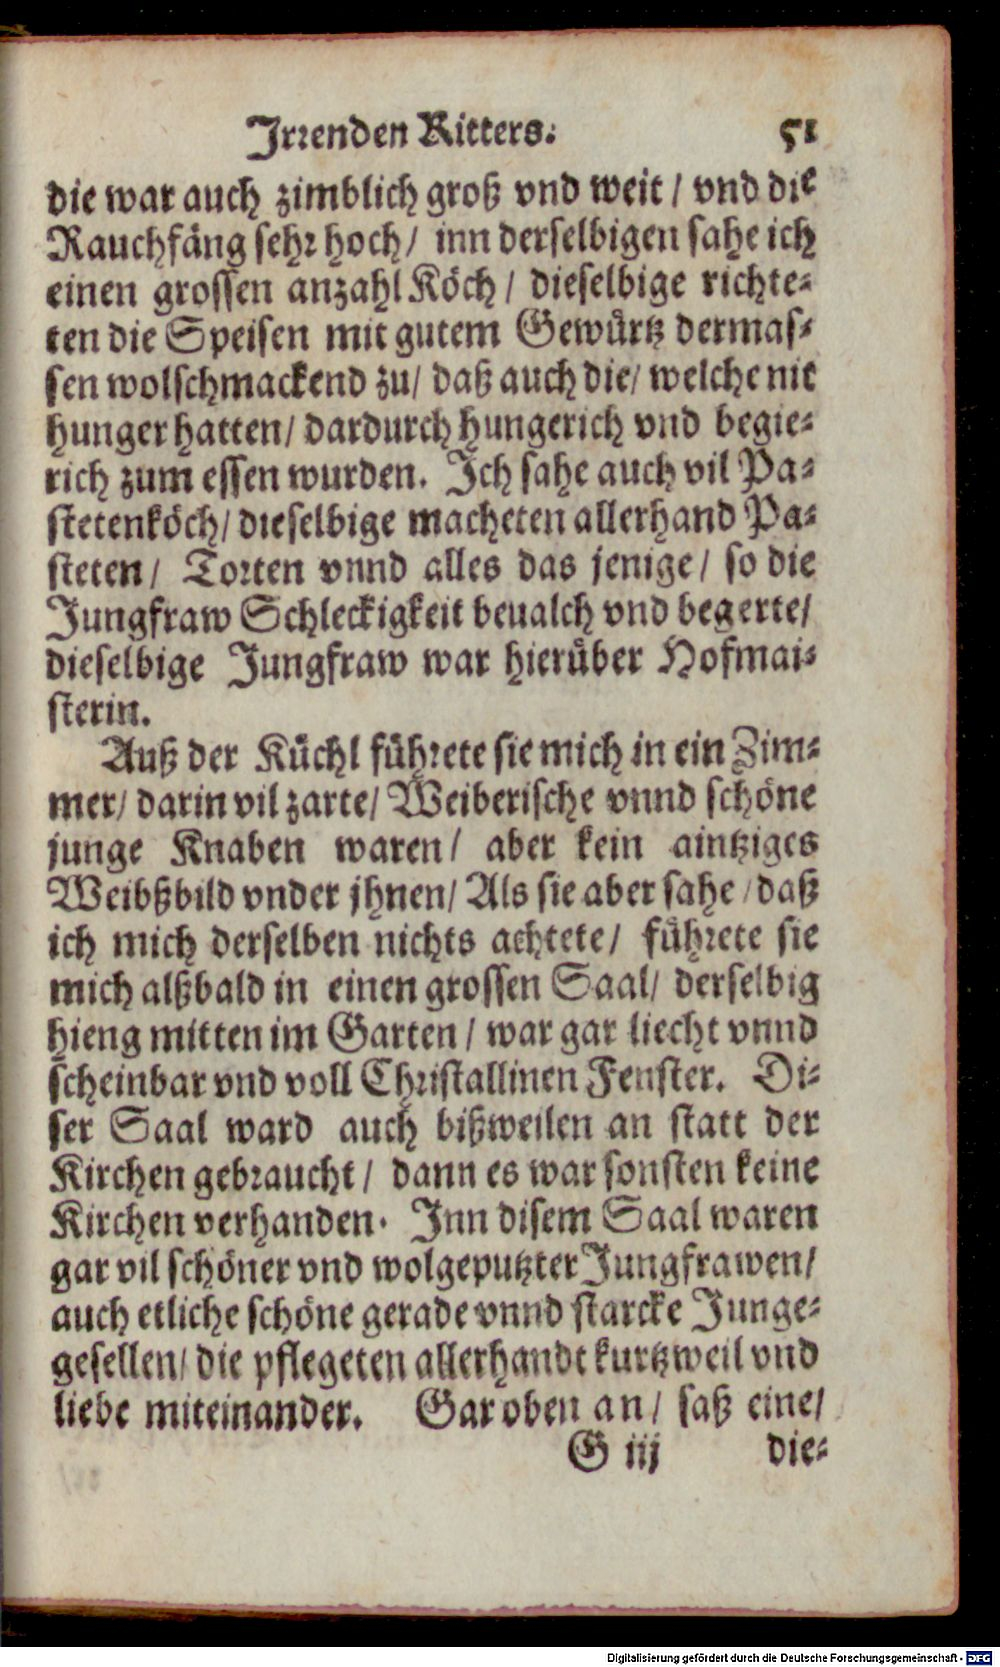 Irrenden Ritters. 51
die war auch zimblich groß vnd weit / vnd die
Rauchfäng sehr hoch / inn derselbigen sahe ich
einen grossen anzahl Köch / dieselbige richte-
ten die Speisen mit gutem Gewürtz dermas-
sen wolschmackend zu / daß auch die / welche nit
hunger hatten / dardurch hungerich vnd begie-
rich zum essen wurden. Ich sahe auch vil Pa-
stetenköch / dieselbige macheten allerhand Pa-
steten / Torten vnnd alles das jenige / so die
Jungfraw Schleckigkeit beualch vnd begerte /
dieselbige Jungfraw war hierüber Hofmai-
sterin.
Auß der Küchl führete sie mich in ein Zim-
mer / darin vil zarte / Weiberische vnnd schöne
junge Knaben waren / aber kein aintziges
Weibßbild vnder jhnen / Als sie aber sahe / daß
ich mich derselben nichts achtete / führete sie
mich alßbald in einen grossen Saal / derselbig
hieng mitten im Garten / war gar liecht vnnd
scheinbar vnd voll Christallinen Fenster. Di-
ser Saal ward auch bißweilen an statt der
Kirchen gebraucht / dann es war sonsten keine
Kirchen verhanden. Inn disem Saal waren
gar vil schöner vnd wolgeputzter Jungfrawen /
auch etliche schöne gerade vnnd starcke Junge-
gesellen / die pflegeten allerhandt kurtzweil vnd
liebe miteinander. Gar oben an / saß eine /
G iij die-
Digitalisierung gefördert durch die Deutsche Forschungsgemeinschaft - DFG